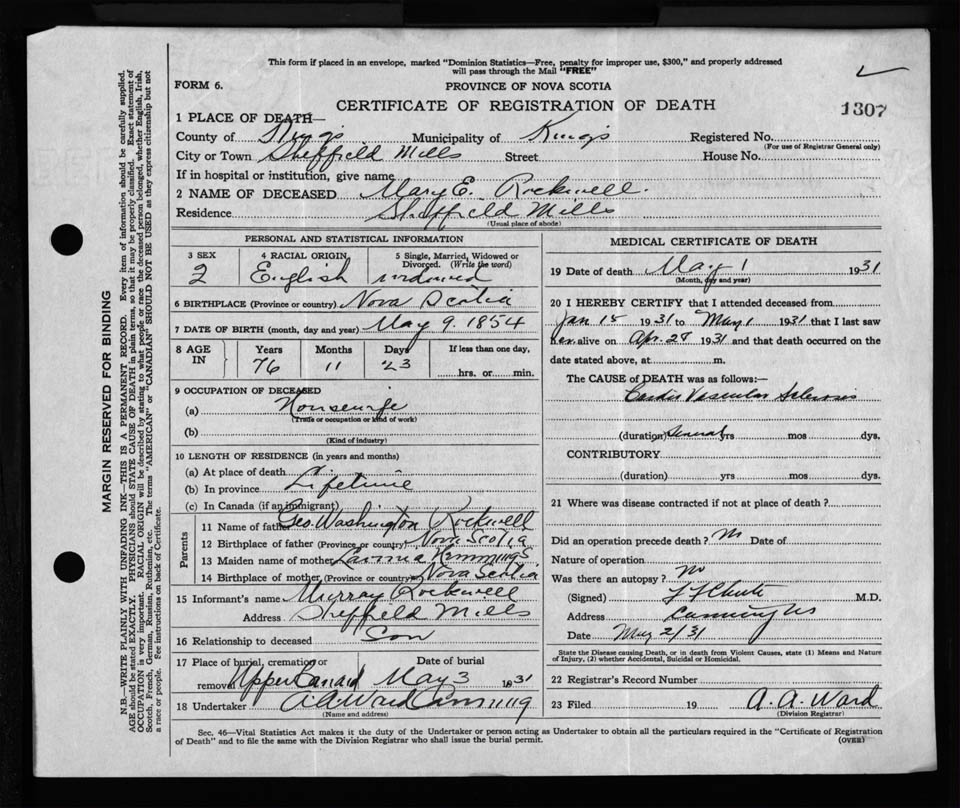 This form if placed in an envelope, marked "Dominion Statistics—Free, penalty for improper use, $300," and properly addressed
will pass through the Mail "FREE"
FORM 6.
PROVINCE OF NOVA SCOTIA
CERTIFICATE OF REGISTRATION OF DEATH
1307
1 PLACE OF DEATH—
County of Kings Municipality of Kings Registered No.
(For use of Registrar General only)
City or Town Sheffield Mills Street House No.
If in hospital or institution, give name
2 NAME OF DECEASED Mary E. Rockwell.
Residence Sheffield Mills
(Usual place of abode)
MARGIN RESERVED FOR BINDING
N.B.—WRITE PLAINLY WITH UNFADING INK—THIS IS A PERMANENT RECORD. Every item of information should be carefully supplied.
AGE should be stated EXACTLY. PHYSICIANS should STATE CAUSE OF DEATH in plain terms, so that it may be properly classified. Exact statement of
OCCUPATION is very important. RACIAL ORIGIN will be described by stating to what people or race the deceased person belonged, whether English, Irish,
Scotch, French, German, Russian, Ruthenian, etc. The terms "AMERICAN" or "CANADIAN" SHOULD NOT BE USED as they express citizenship but not
a race or people. See instructions on back of Certificate.
PERSONAL AND STATISTICAL INFORMATION
3 SEX 4 RACIAL ORIGIN 5 Single, Married, Widowed or
Divorced. (Write the word)
2 English widowed
6 BIRTHPLACE (Province or country) Nova Scotia
7 DATE OF BIRTH (month, day and year) May 9. 1854
8 AGE IN Years Months Days If less than one day,
76 11 23 hrs. or min.
9 OCCUPATION OF DECEASED
(a) Housewife
(Trade or occupation or kind of work)
(b)
(Kind of industry)
10 LENGTH OF RESIDENCE (in years and months)
(a) At place of death
(b) In province Lifetime
(c) In Canada (if an immigrant)
Parents
11 Name of father Geo. Washington Rockwell
12 Birthplace of father (Province or country) Nova Scotia
13 Maiden name of mother Hemmings
14 Birthplace of mother (Province or country) Nova Scotia
15 Informant's name Murray Rockwell
Address Sheffield Mills
16 Relationship to deceased Son
17 Place of burial, cremation or Date of burial
removal Upper Canard May 3 1931
18 Undertaker A A Ward Canning
(Name and address)
MEDICAL CERTIFICATE OF DEATH
19 Date of death May 1 1931
(Month, day and year)
20 I HEREBY CERTIFY that I attended deceased from
Jan 15 1931 to May 1 1931 that I last saw
her alive on Apr. 28 1931 and that death occurred on the
date stated above, at m.
The CAUSE of DEATH was as follows:—
Cardio Vascular Sclerosis
(duration) Several yrs mos dys.
CONTRIBUTORY
(duration) yrs mos dys.
21 Where was disease contracted if not at place of death?
Did an operation precede death? No Date of
Nature of operation
Was there an autopsy? No
(Signed) Chute M.D.
Address Canning NS
Date May 2/31
State the Disease causing Death, or in death from Violent Causes, state (1) Means and Nature
of Injury, (2) whether Accidental, Suicidal or Homicidal.
22 Registrar's Record Number
23 Filed 19 A. A. Ward
(Division Registrar)
Sec. 46—Vital Statistics Act makes it the duty of the Undertaker or person acting as Undertaker to obtain all the particulars required in the "Certificate of Registration
of Death" and to file the same with the Division Registrar who shall issue the burial permit.
(OVER)